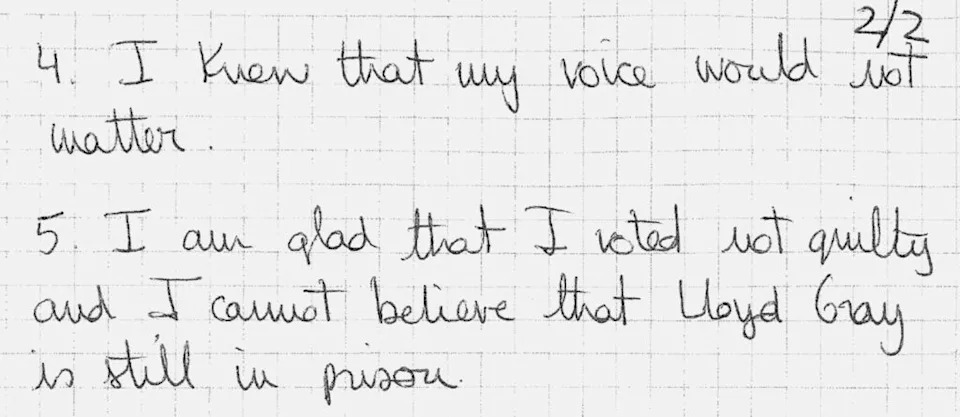 2/2
4. I knew that my voice would not
matter.
5. I am glad that I voted not guilty
and I cannot believe that Lloyd Gray
is still in prison.